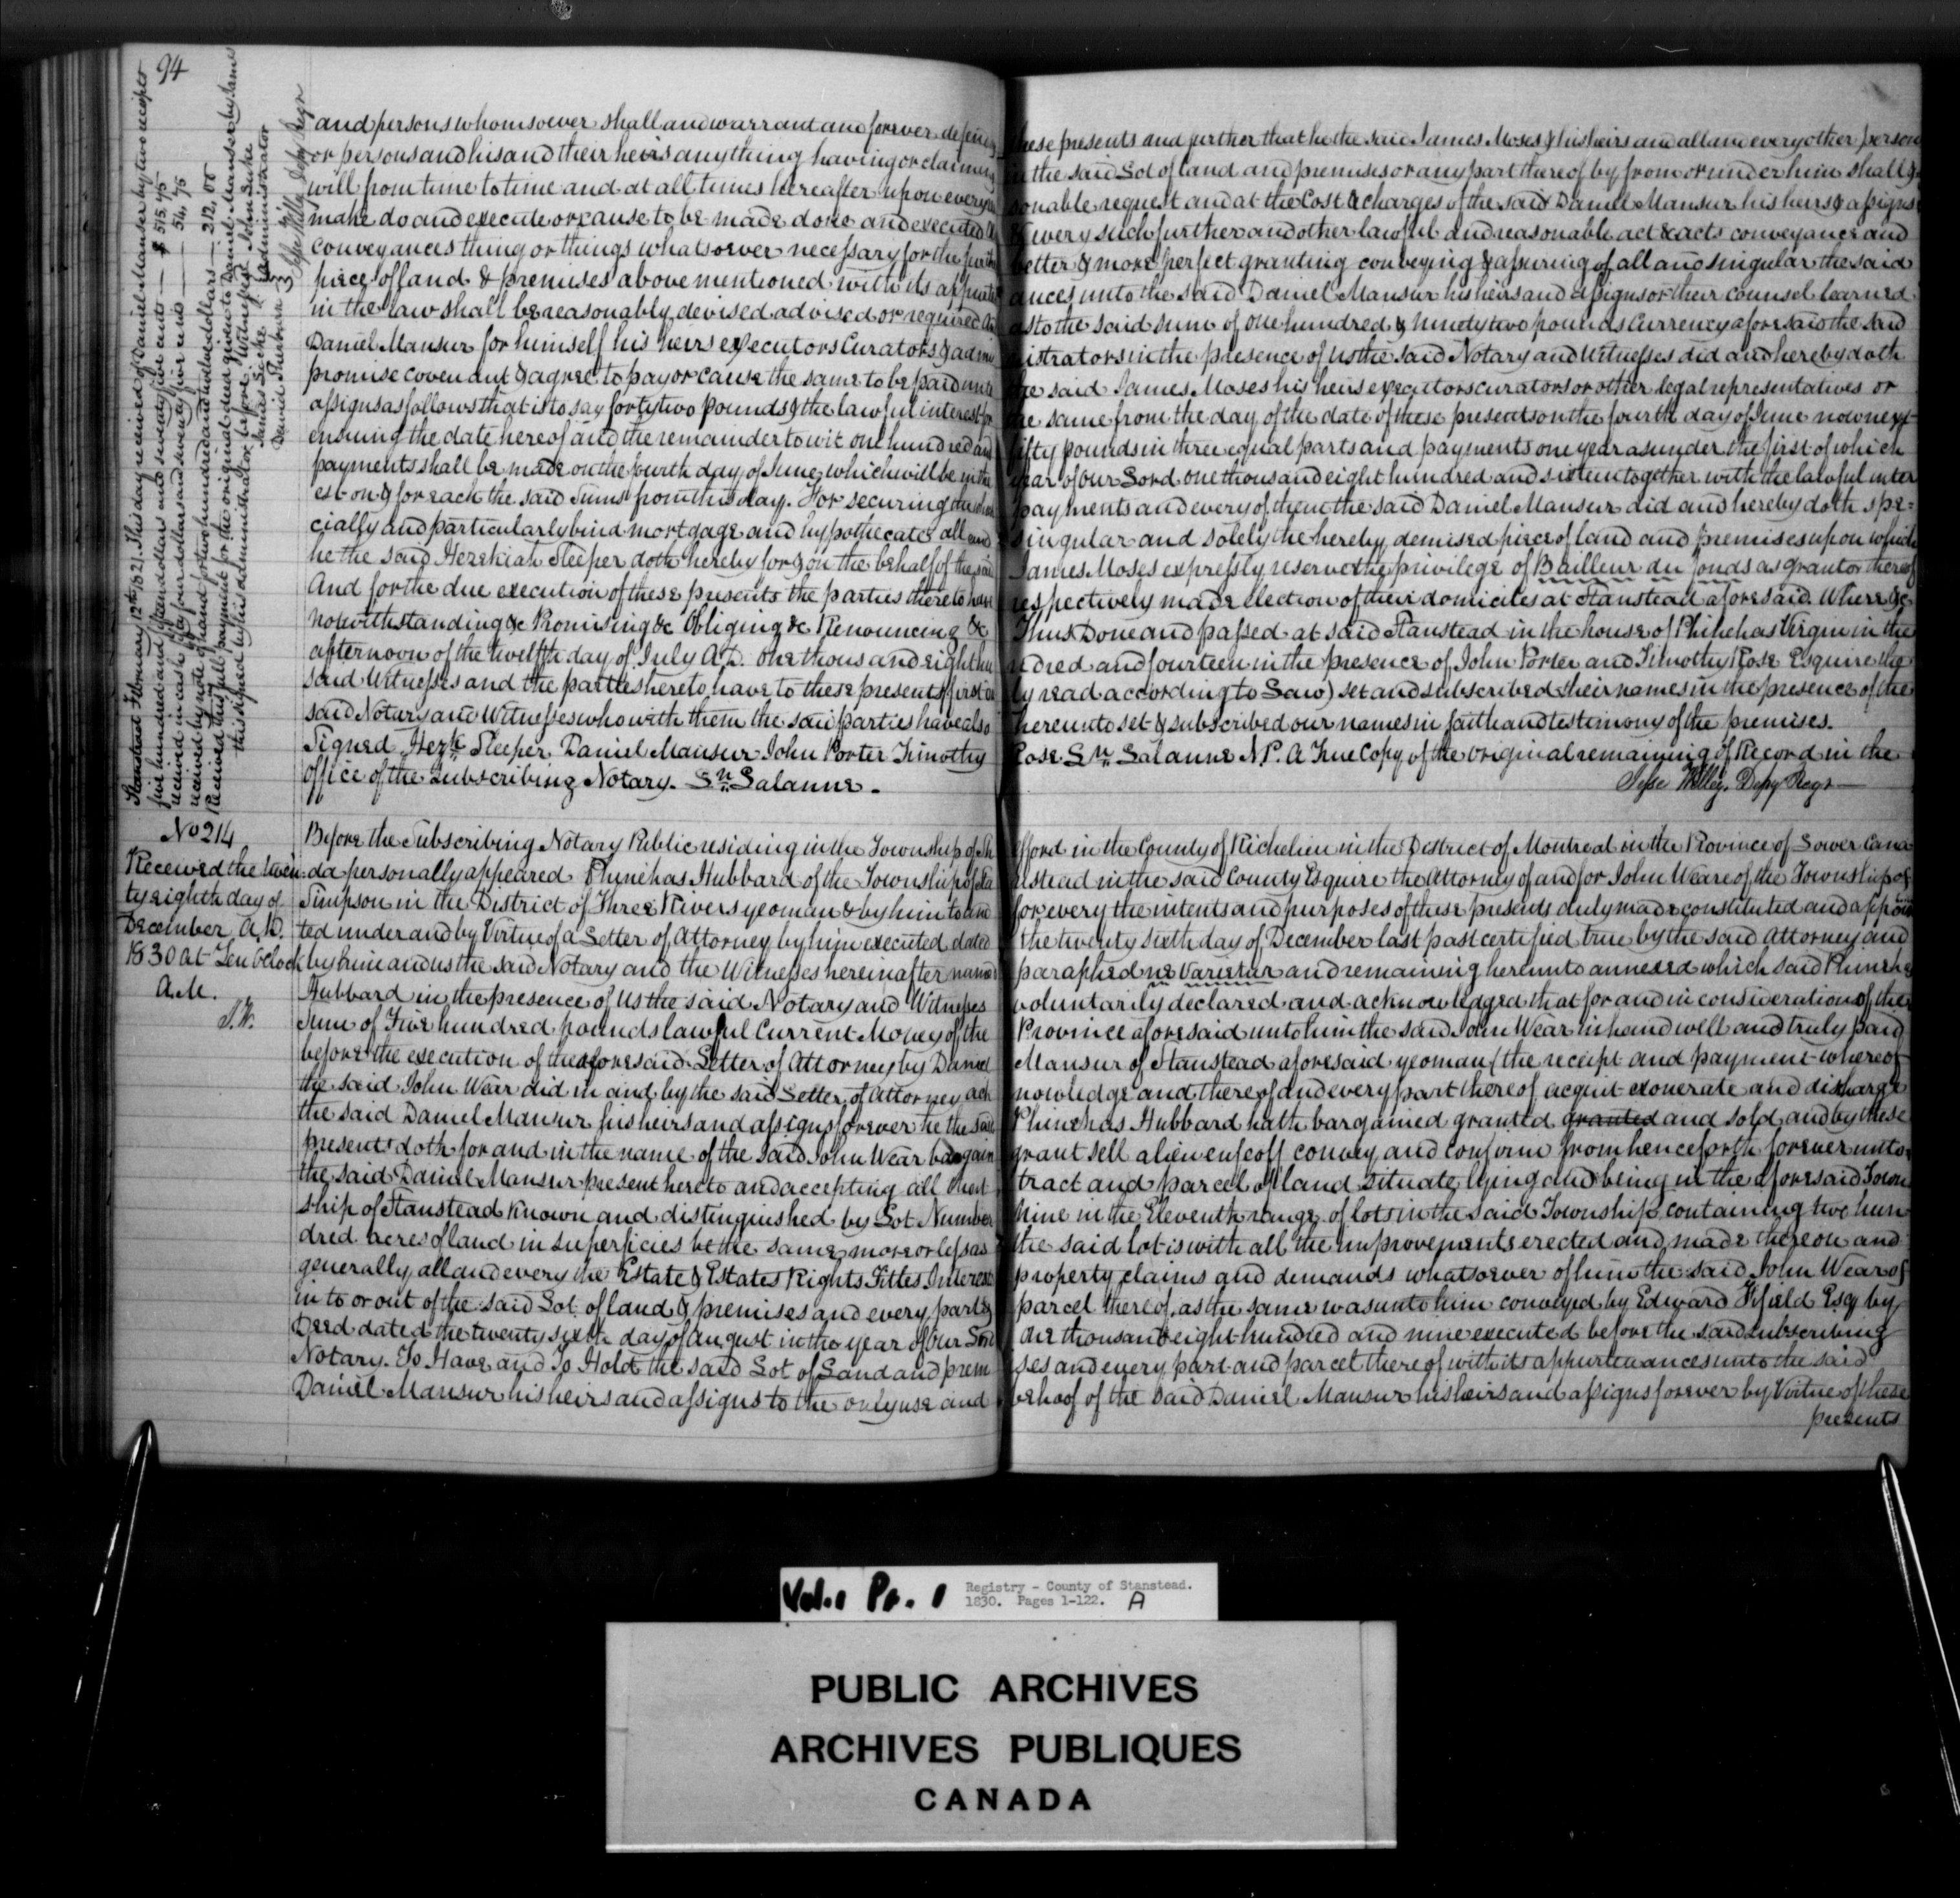 94
Stanstead February 12th 1821. This day received of Daniel Mansur by two receipts
five hundred and fifteen dollars and seventy five cents — $ 515.75
received in cash fifty four dollars and seventy five cents — 54.75
received by note of hand for two hundred and twelve dollars — 212.00
Received this full payment for the original deed given to Daniel Mansur by James
this signed by his administrator before witnesses John Locke
James Locke } administrator
David Thurburn
Jesse Willey Depy Regr
and persons whomsoever shall and warrant and forever defend these presents and further that he the said James Moses & his heirs and all and every other person
or persons and his and their heirs anything having or claiming in the said Lot of land and premises or any part thereof by from or under him shall &
will from time to time and at all times hereafter upon every rea sonable request and at the Cost & charges of the said Daniel Mansur his heirs & assigns
make do and execute or cause to be made done and executed all & every such further and other lawful and reasonable act & acts conveyance and
conveyances thing or things whatsoever necessary for the further better & more perfect granting conveying & assuring of all and singular the said
piece of land & premises above mentioned with its appurten ances unto the said Daniel Mansur his heirs and assigns or their counsel learned
in the law shall be reasonably devised advised or required And as to the said sum of one hundred & ninety two pounds Currency aforesaid the said
Daniel Mansur for himself his heirs executors Curators & admi nistrators in the presence of us the said Notary and Witnesses did and hereby doth
promise covenant & agree to pay or cause the same to be paid unto the said James Moses his heirs executors curators or other legal representatives or
assigns as follows that is to say forty two pounds & the lawful interest for the same from the day of the date of these presents on the fourth day of June now next
ensuing the date hereof and the remainder to wit one hundred and fifty pounds in three equal parts and payments one year asunder the first of which
payments shall be made on the fourth day of June which will be in the year of our Lord one thousand eight hundred and sixteen together with the lawful inter
est on & for each the said Sums from this day. For securing the which payments and every of them the said Daniel Mansur did and hereby doth spe=
cially and particularly bind mortgage and hypothecate all and singular and solely the hereby demised piece of land and premises upon which
he the said Hezekiah Sleeper doth hereby for & on the behalf of the said James Moses expressly reserve the privilege of Bailleur du fonds as grantor thereof
And for the due execution of these presents the parties thereto have respectively made election of their domiciles at Stanstead aforesaid. Where &c
notwithstanding &c Promising &c Obliging &c Renouncing &c Thus Done and passed at said Stanstead in the house of Phinehas Virgin in the
afternoon of the twelfth day of July A.D. one thousand eight hu ndred and fourteen in the presence of John Porter and Timothy Rose Esquire the
said Witnesses and the parties hereto have to these presents (first du ly read according to Law) set and subscribed their names in the presence of the
said Notary and Witnesses who with them the said parties have also hereunto set & subscribed our names in faith and testimony of the premises.
Signed Hezh Sleeper Daniel Mansur John Porter Timothy Rose Sn Lalanne N.P. A True Copy of the original remaining of Record in the
office of the subscribing Notary. Sn Lalanne. Jesse Willey Depy Regr
No 214
Received the twen
ty eighth day of
December A.D.
1830 at Ten oClock
A.M.
J.W.
Before the Subscribing Notary Public residing in the Township of Sh efford in the County of Richelieu in the District of Montreal in the Province of Lower Cana
da personally appeared Phinehas Hubbard of the Township of Sta nstead in the said County Esquire the Attorney of and for John Weare of the Township of
Simpson in the District of Three Rivers yeoman & by him to and for every the intents and purposes of these presents duly made constituted and appoin
ted under and by Virtue of a Letter of Attorney by him executed dated the twenty sixth day of December last past certified true by the said Attorney and
by him and us the said Notary and the Witnesses hereinafter named paraphed ne Varietur and remaining hereunto annexed which said Phinehas
Hubbard in the presence of us the said Notary and Witnesses voluntarily declared and acknowledged that for and in consideration of the
Sum of Five hundred pounds lawful Current Money of the Province aforesaid unto him the said John Wear in hand well and truly paid
before the execution of the aforesaid Letter of Attorney by Daniel Mansur of Stanstead aforesaid yeoman (the receipt and payment whereof
the said John Wear did in and by the said Letter of Attorney ack nowledge and thereof and every part thereof acquit exonerate and discharge
the said Daniel Mansur his heirs and assigns forever he the said Phinehas Hubbard hath bargained granted granted and sold, and by these
presents doth for and in the name of the said John Wear bargain grant sell alien enfeoff convey and confirm from henceforth forever unto
the said Daniel Mansur present hereto and accepting all that tract and parcel of land situate lying and being in the aforesaid Town
ship of Stanstead known and distinguished by Lot Number Nine in the Eleventh range of lots in the said Township containing two hun
dred acres of land in superficies be the same more or less as the said lot is with all the improvements erected and made thereon and
generally all and every the Estate & Estates Rights Titles Interest property claims and demands whatsoever of him the said John Wear of
in to or out of the said Lot of land & premises and every part & parcel thereof, as the same was unto him conveyed by Edward Fifield Esq by
Deed dated the twenty sixth day of August in the year of our Lord One thousand eight hundred and nine executed before the said subscribing
Notary. To Have and To Hold the said Lot of Land and premi ses and every part and parcel thereof with its appurtenances unto the said
Daniel Mansur his heirs and assigns to the only use and behoof of the said Daniel Mansur his heirs and assigns forever by Virtue of these
presents
Vol. 1 Pr. 1 Registry - County of Stanstead.
1830. Pages 1-122. A
PUBLIC ARCHIVES
ARCHIVES PUBLIQUES
CANADA